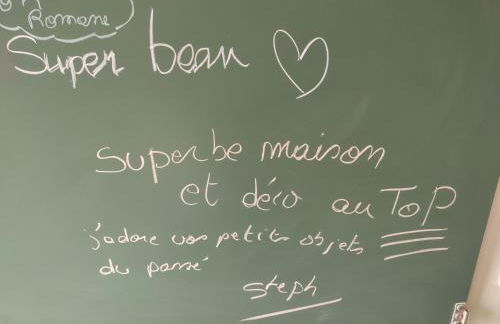 Romane
Super beau
superbe maison
et déco au TOP
j'adore vos petits objets
du passé
steph